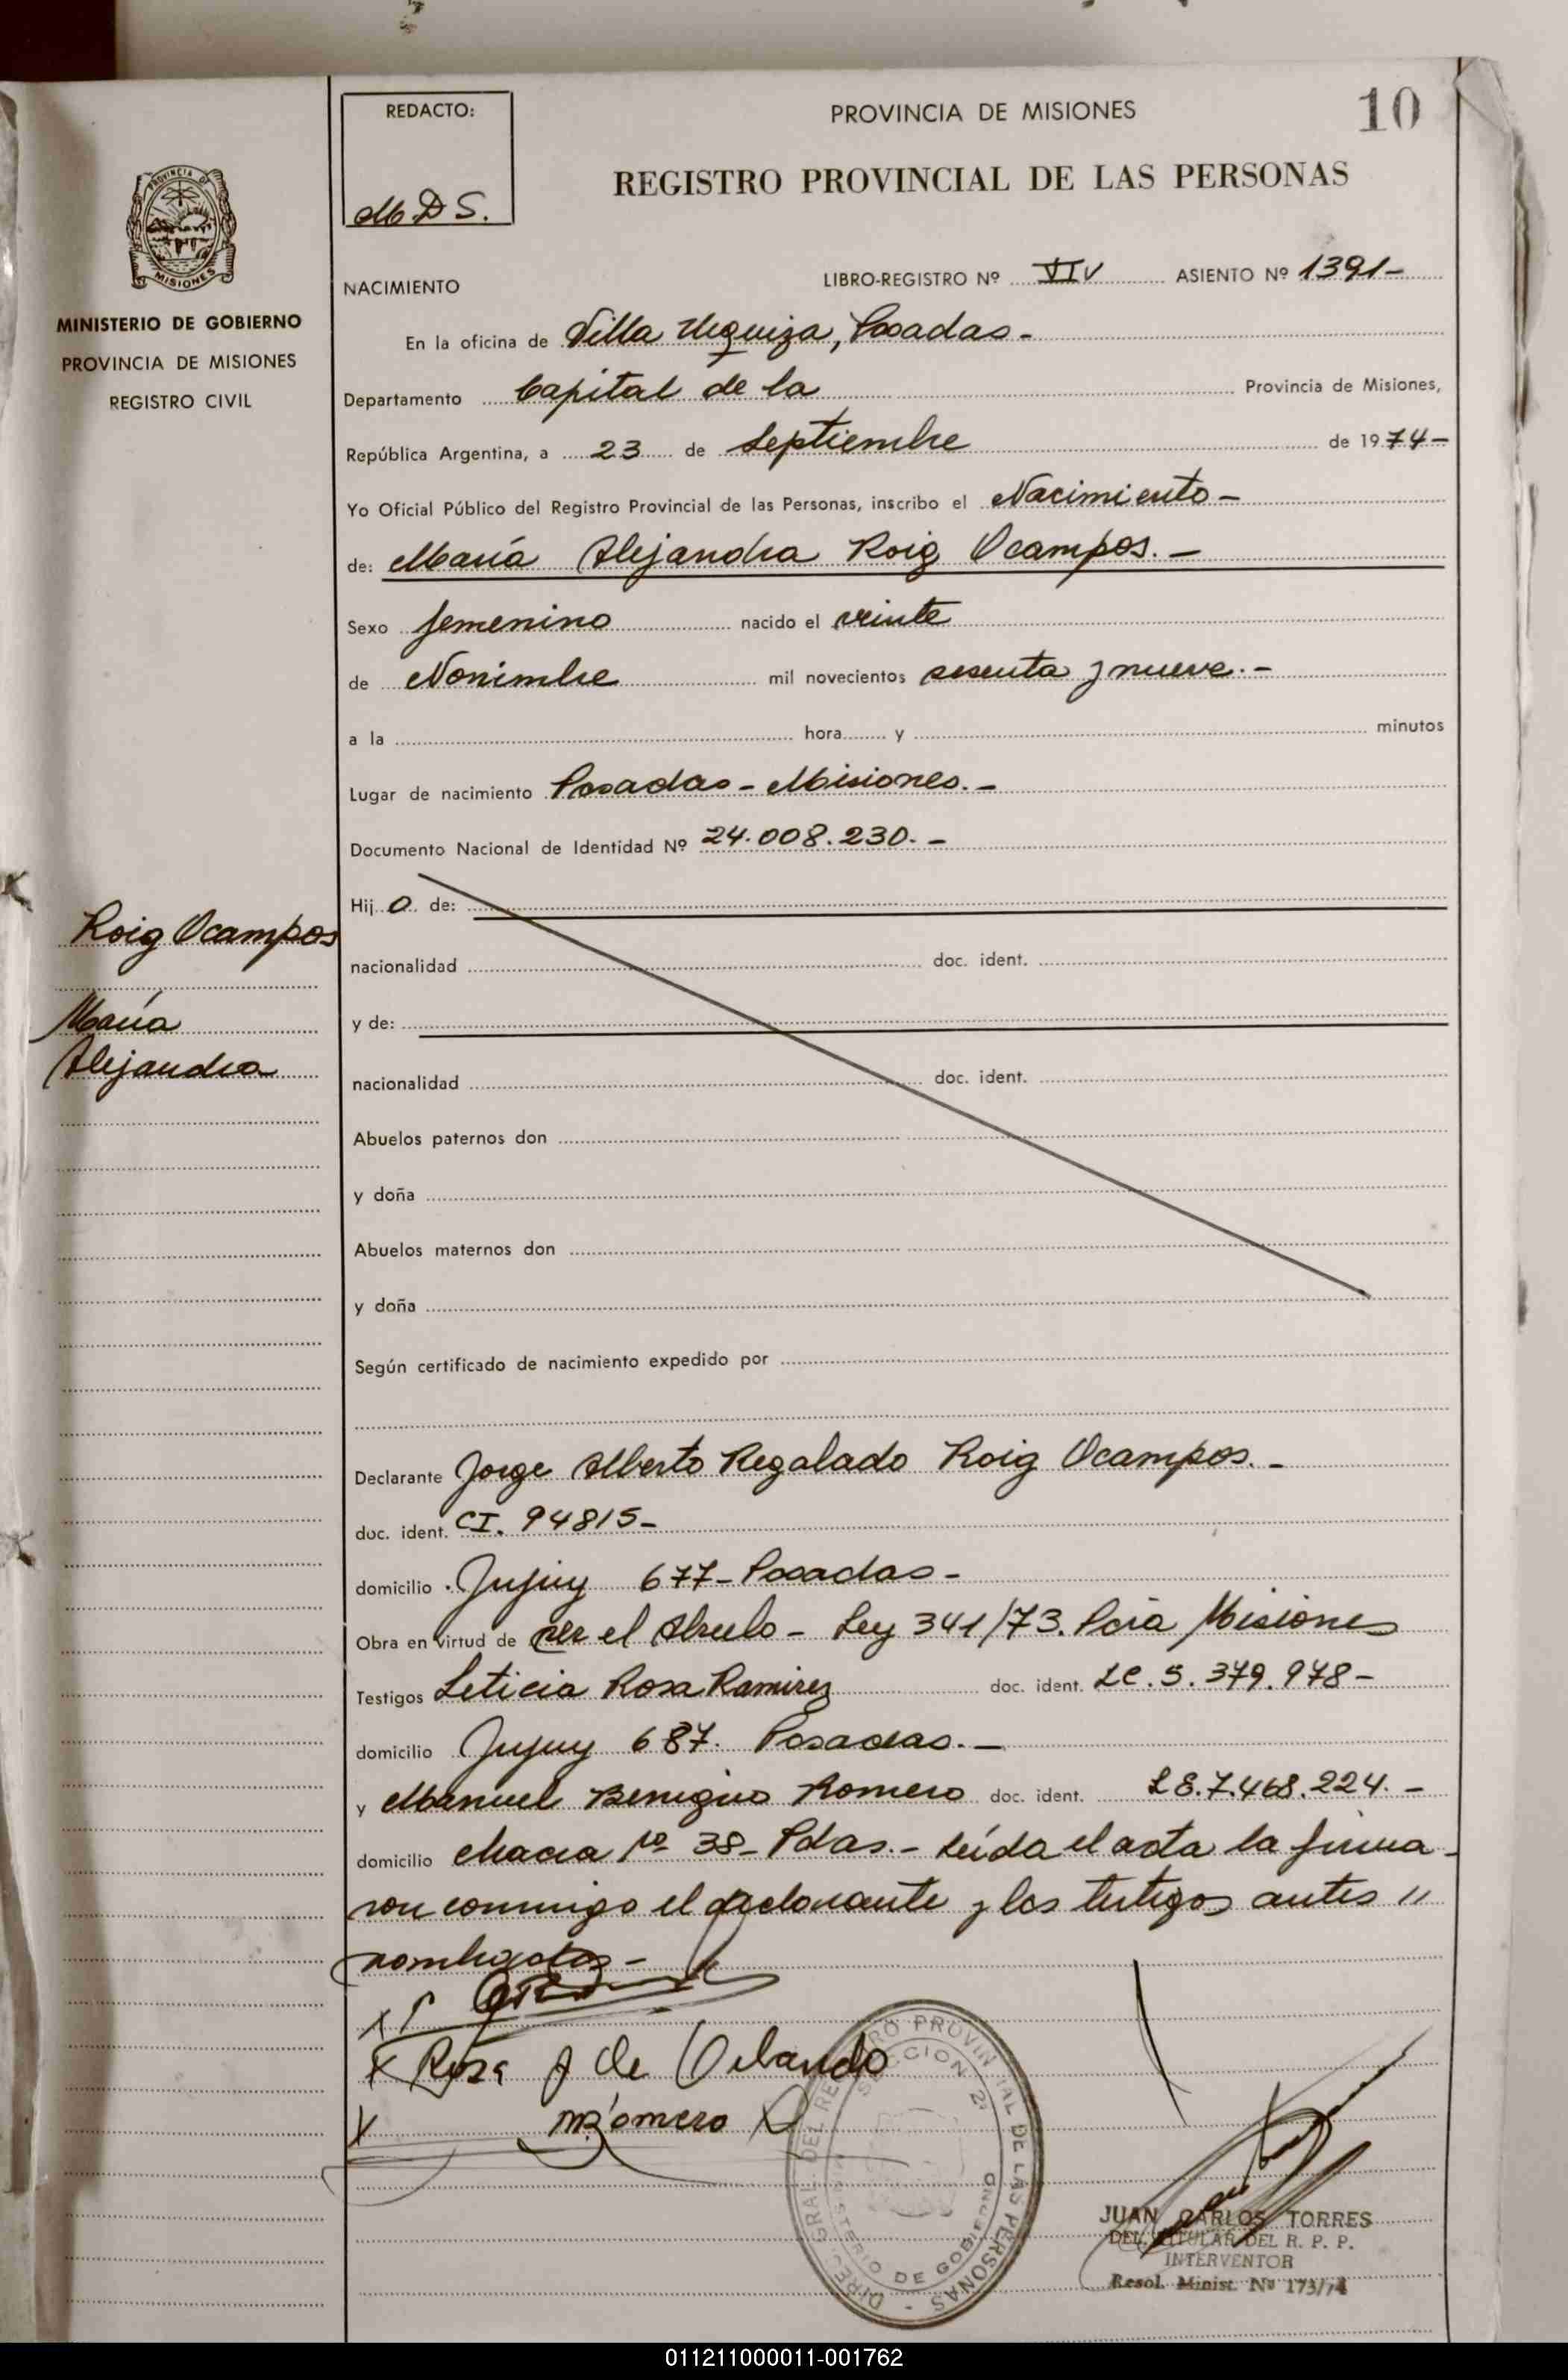 10
REDACTO:
MDS.
PROVINCIA DE MISIONES
REGISTRO PROVINCIAL DE LAS PERSONAS
PROVINCIA DE
MISIONES
MINISTERIO DE GOBIERNO
PROVINCIA DE MISIONES
REGISTRO CIVIL
NACIMIENTO LIBRO-REGISTRO Nº VIV ASIENTO Nº 1391-
En la oficina de Villa Urquiza, Posadas-
Departamento Capital de la Provincia de Misiones,
República Argentina, a 23 de Septiembre de 1974-
Yo Oficial Público del Registro Provincial de las Personas, inscribo el Nacimiento-
de: María Alejandra Roig Ocampos.-
Sexo femenino nacido el veinte
de Novimbre mil novecientos sesenta y nueve.-
a la hora y minutos
Lugar de nacimiento Posadas - Misiones.-
Documento Nacional de Identidad Nº 24.008.230.-
Hij o de:
nacionalidad doc. ident.
y de:
nacionalidad doc. ident.
Abuelos paternos don
y doña
Abuelos maternos don
y doña
Según certificado de nacimiento expedido por
Roig Ocampos
María
Alejandra
Declarante Jorge Alberto Regalado Roig Ocampos.-
doc. ident. CI. 94815-
domicilio Jujuy 677- Posadas-
Obra en virtud de ser el Abuelo - Ley 341/73. Pcia Misiones
Testigos Leticia Rosa Ramirez doc. ident. LC. 5.379.978-
domicilio Jujuy 687. Posadas.-
y Manuel Benigno Romero doc. ident. LE.7.468.224.-
domicilio Chacra Nº 38- Pdas.- Leída el acta la firma-
ron conmigo el declarante y los testigos antes "
nombrados-
X Rosa J de Orlando
X M Romero
DIREC. GRAL. DEL REGISTRO PROVINCIAL DE LAS PERSONAS -
SECCION 2ª
MINISTERIO DE GOBIERNO
JUAN CARLOS TORRES
DEL. TITULAR DEL R. P. P.
INTERVENTOR
Resol. Minist. Nº 173/74
011211000011-001762